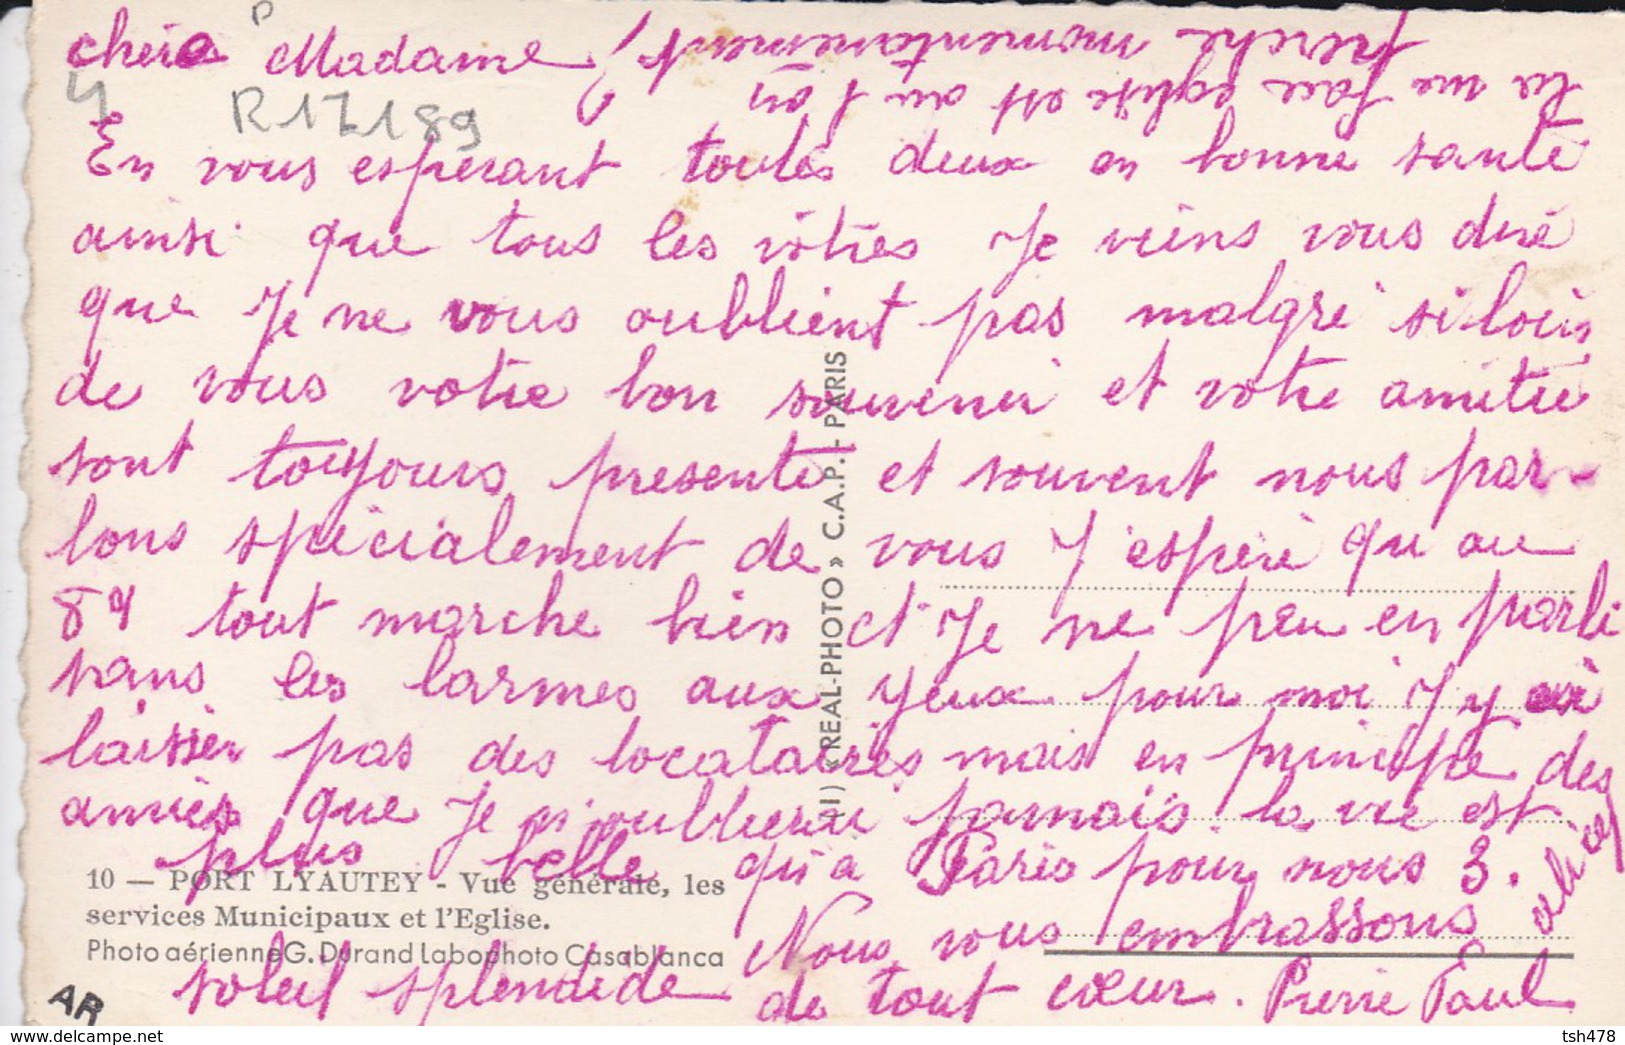 chère Madame,
R17189
En vous esperant toutes deux en bonne santé
ainsi que tous les vôtres Je viens vous dire
que Je ne vous oublient pas malgré si loin
de vous votre bon souvenir et votre amitié
sont toujours presente et souvent nous par-
lons spécialement de vous J'espère qu au
84 tout marche bien et Je ne peu en parle
sans les larmes aux yeux pour moi J y ai
laisser pas des locataires mais en principe des
amies que Je n'oublierai jamais. la vie est
plus belle qu'a Paris pour nous 3.
Nous vous embrassons
soleil splendide de tout cœur. Pierre Paul
Alice
la rue face eglise est ou l on
perche momentanement
10 — PORT LYAUTEY - Vue générale, les
services Municipaux et l'Eglise.
Photo aérienne G. Durand Labophoto Casablanca
(I) « REAL-PHOTO » C.A.P. - PARIS
AR
© delcampe.net
tsh478